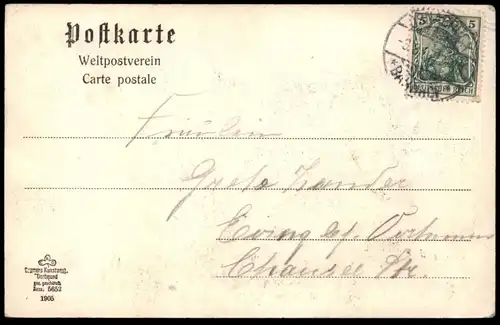 Postkarte
Weltpostverein
Carte postale
5 5
Fräulein
Grete Zander
Eving bei Dortmund
Chaussee Str.
Cramers Kunstanst.
Dortmund
ges. geschützt
5652
1905